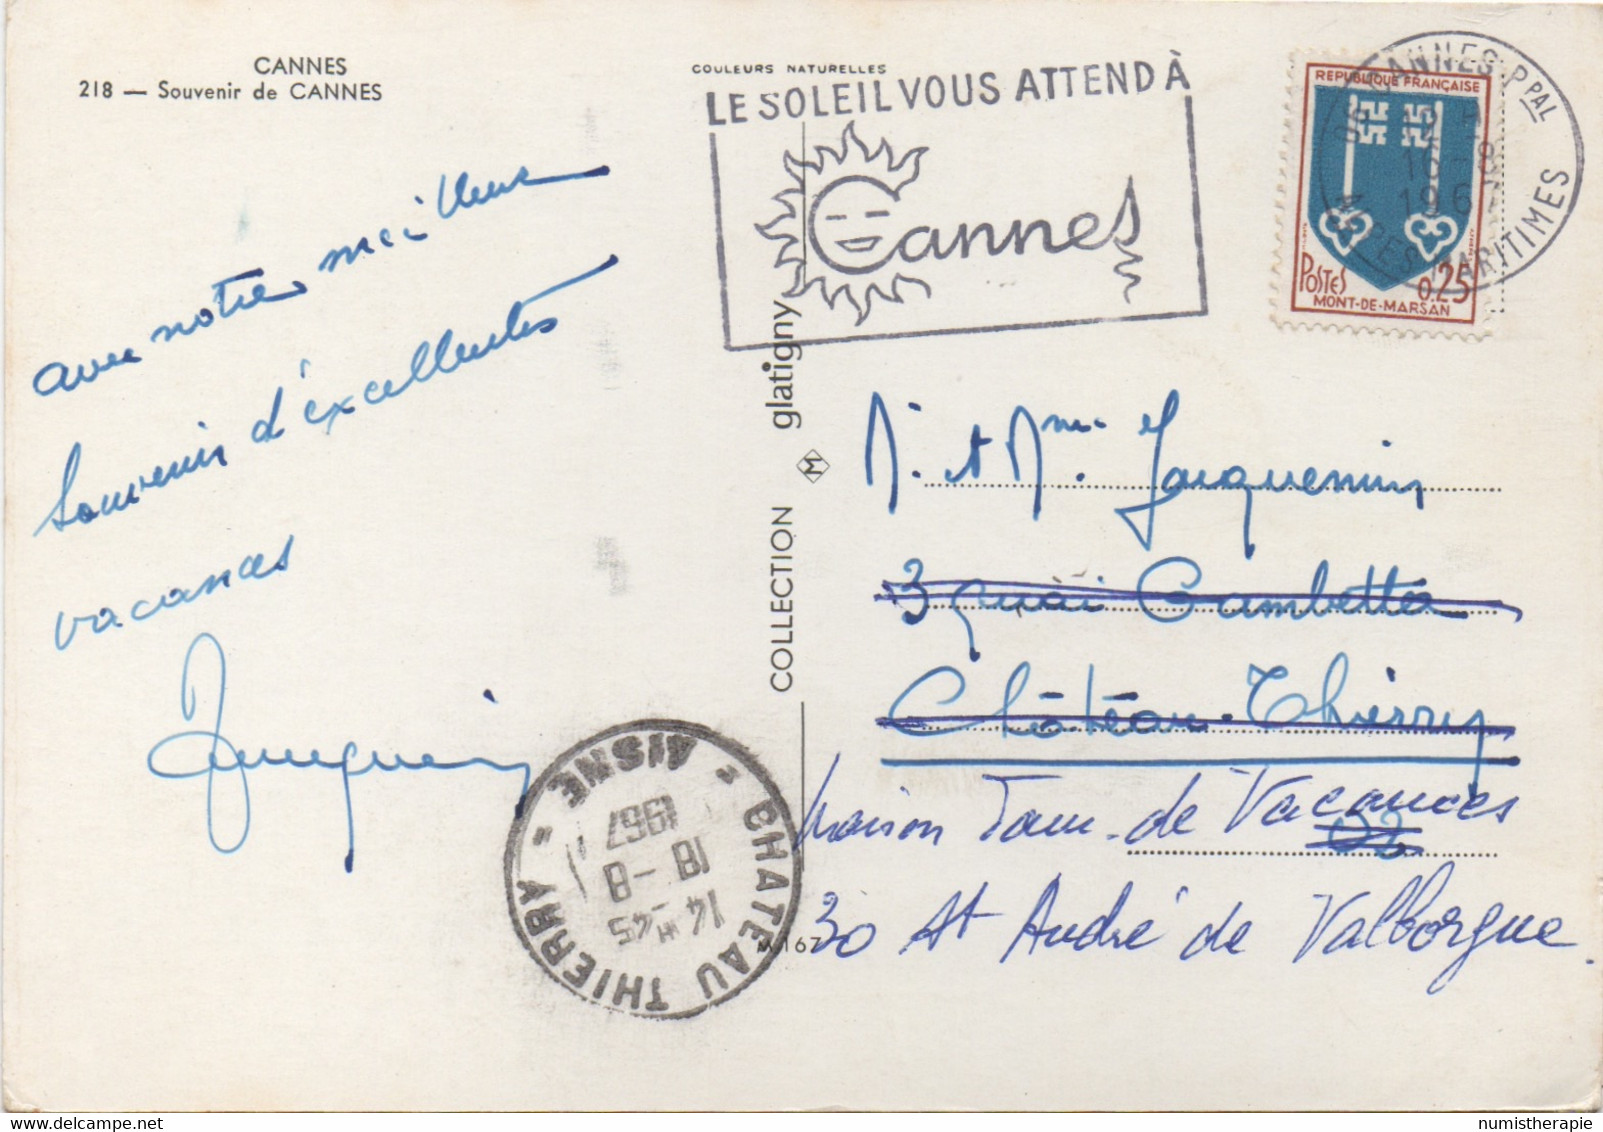 CANNES
218 — Souvenir de CANNES
avec notre meilleur
souvenir d'excellentes
vacances
COULEURS NATURELLES
LE SOLEIL VOUS ATTEND À
Cannes
RÉPUBLIQUE FRANÇAISE
POSTES 0.25
MONT-DE-MARSAN
06 CANNES PPAL
16 -8
196
ALPES MARITIMES
COLLECTION M glatigny
M 167
M. et Mme Jacquemin
3 quai Gambetta
Château-Thierry
Maison Fam. de Vacances
02
30 St André de Valborgne.
CHATEAU THIERRY
14 H 45
18 -8
1967
= AISNE =
numistherapie